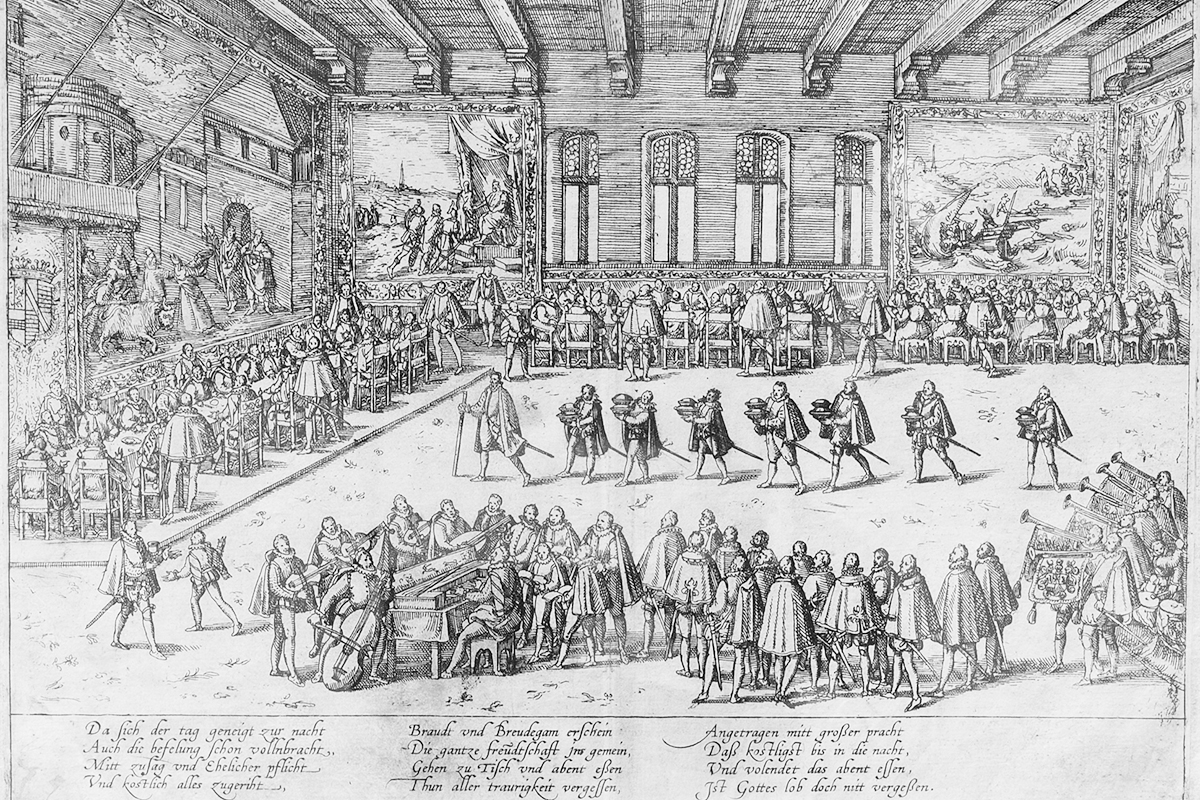 Da sich der tag geneigt zur nacht
Auch die befelung schon vollnbracht,
Mitt zusag vnd Ehelicher pflicht
Vnd kostlich alles zugeriht,
Braudt vnd Breudegam erschein
Die gantze freudtschaft jns gemein,
Gehen zu Tisch vnd abent eßen
Thun aller traurigkeit vergessen,
Angetragen mitt großer pracht
Daß kostligst bis in die nacht,
Vnd volendet das abent essen,
Jst Gottes lob doch nitt vergeßen.